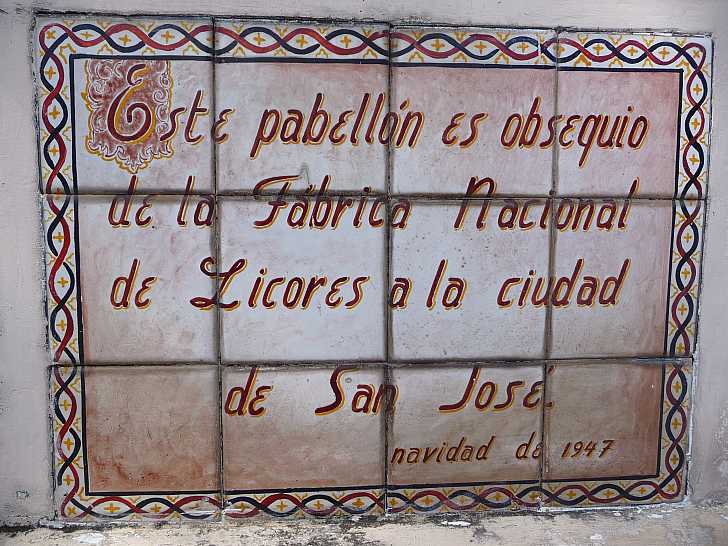 Este pabellón es obsequio
de la Fábrica Nacional
de Licores a la ciudad
de San José.
navidad de 1947